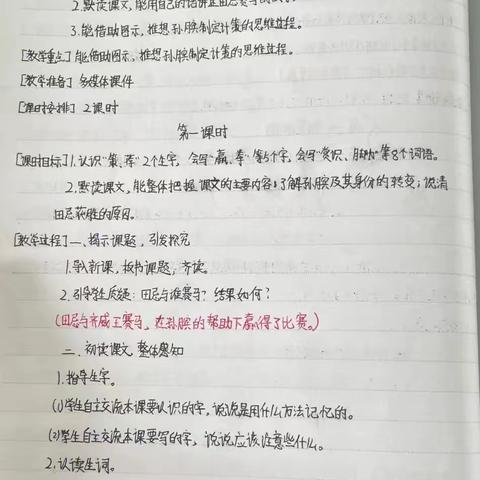 2.默读课文,能用自己的话讲述田忌赛马的
3.能借助图示,推想孙膑制定计策的思维过程。
[教学重点]能借助图示,推想孙膑制定计策的思维过程。
[教学准备]多媒体课件
[课时安排]2课时
第一课时
[课时目标]1.认识“策、荐”2个生字,会写“赢、拳”等5个字,会写“赏识、脚力”等8个词语。
2.默读课文,能整体把握课文的主要内容;了解孙膑及其身份的转变;说清
田忌获胜的原因。
[教学过程]一、揭示课题,引发探究
1.导入新课,板书课题,齐读。
2.引导学生质疑:田忌与谁赛马?结果如何?
(田忌与齐威王赛马,在孙膑的帮助下赢得了比赛。)
二、初读课文,整体感知
1.指导生字。
(1)学生自主交流本课要认识的字,说说是用什么方法记忆的。
(2)学生自主交流本课要写的字,说说应该注意些什么。
2.认读生词。